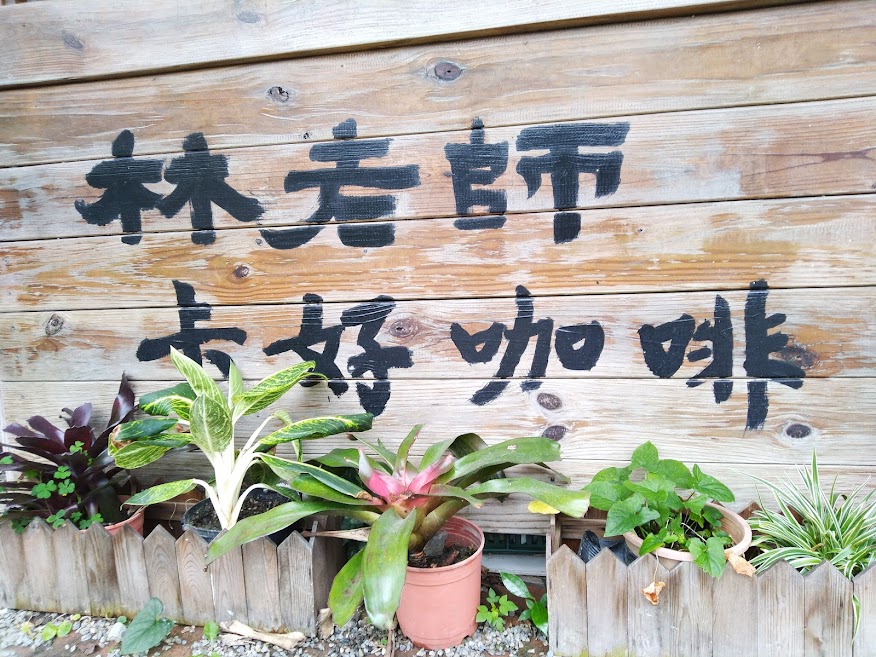 林老師
卡好咖啡